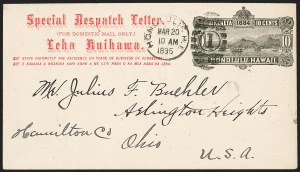 Special Despatch Letter.
(FOR DOMESTIC MAIL ONLY.)
Leka Kuikawa.
HONOLULU H.I.
MAR 20
10 AM
1895
1884
10 CENTS
10
HONOLULU HAWAII
Mr Julius F. Buehler
Arlington Heights
Hamilton Co
Ohio
U.S.A.